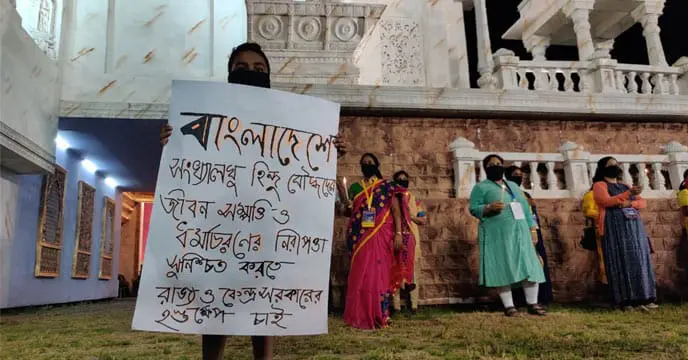 বাংলাদেশে
সংখ্যালঘু হিন্দু বৌদ্ধদের
জীবন সম্পত্তি ও
ধর্মাচরণের নিরাপত্তা
সুনিশ্চিত করতে
রাজ্য ও কেন্দ্র সরকারের
হস্তক্ষেপ চাই